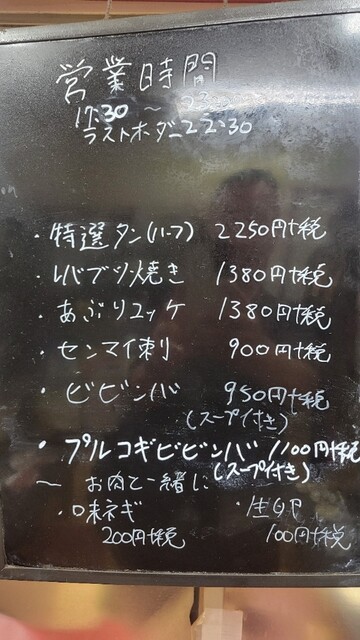 営業時間
17:30 ~
ラストオーダー22:30
・特選タン(ハーフ) 2250円+税
・レバブツ焼き 1380円+税
・あぶりユッケ 1380円+税
・センマイ刺 900円+税
・ビビンバ 950円+税
(スープ付き)
・プルコギビビンバ 1100円+税
(スープ付き)
~ お肉と一緒に
・口末ネギ ・生卵
200円+税 100円+税